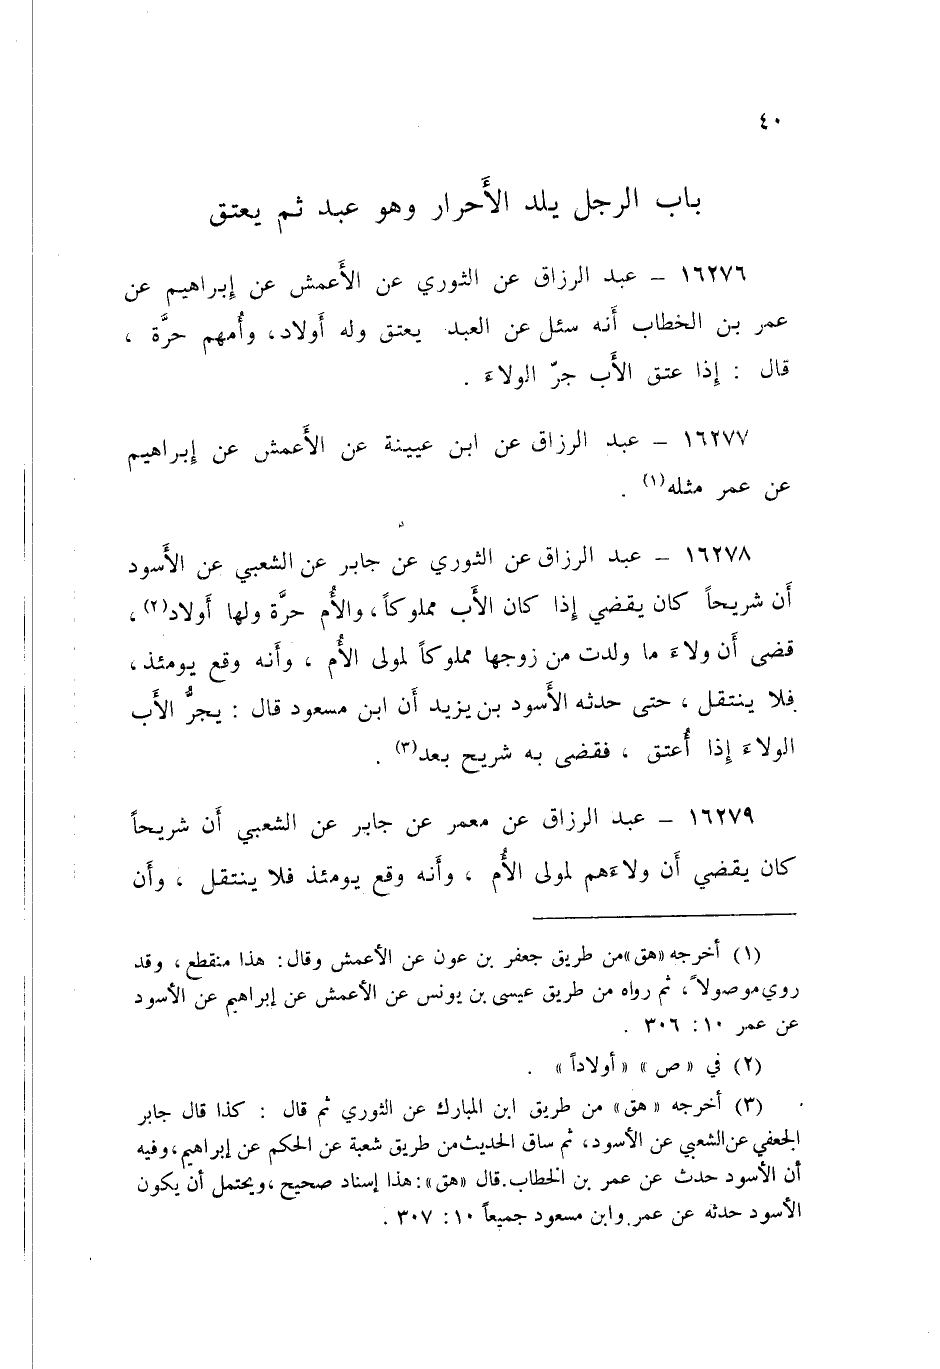 ٤٠
باب الرجل يلد الأَحرار وهو عبد ثم يعتق
١٦٢٧٦ – عبد الرزاق عن الثوري عن الأَعمش عن إبراهيم عن
عمر بن الخطاب أَنه سئل عن العبد يعتق وله أَولاد، وأُمهم حرَّة ،
قال : إذا عتق الأَب جرّ الولاءَ .
١٦٢٧٧ – عبد الرزاق عن ابن عيينة عن الأَعمش عن إبراهيم
عن عمر مثله(١) .
١٦٢٧٨ – عبد الرزاق عن الثوري عن جابر عن الشعبي عن الأَسود
أَن شريحاً كان يقضي إذا كان الأَب مملوكاً، والأُم حرَّة ولها أَولاد(٢)،
قضى أَن ولاءَ ما ولدت من زوجها مملوكاً لمولى الأُم ، وأَنه وقع يومئذ،
فلا ينتقل ، حتى حدثه الأَسود بن يزيد أَن ابن مسعود قال : يجرُّ الأَب
الولاءَ إذا أُعتق ، فقضى به شريح بعد(٣) .
١٦٢٧٩ – عبد الرزاق عن معمر عن جابر عن الشعبي أَن شريحاً
كان يقضي أَن ولاءَهم لمولى الأُم ، وأَنه وقع يومئذ فلا ينتقل ، وأَن
(١) أخرجه «هق»من طريق جعفر بن عون عن الأعمش وقال: هذا منقطع، وقد
روي موصولاً، ثم رواه من طريق عيسى بن يونس عن الأعمش عن إبراهيم عن الأسود
عن عمر ١٠: ٣٠٦ .
(٢) في « ص » « أولاداً » .
(٣) أخرجه « هق» من طريق ابن المبارك عن الثوري ثم قال : كذا قال جابر
الجعفي عن الشعبي عن الأسود، ثم ساق الحديث من طريق شعبة عن الحكم عن إبراهيم،وفيه
أن الأسود حدث عن عمر بن الخطاب.قال «هق»:هذا إسناد صحيح،ويحتمل أن يكون
الأسود حدثه عن عمر وابن مسعود جميعاً ١٠: ٣٠٧ .